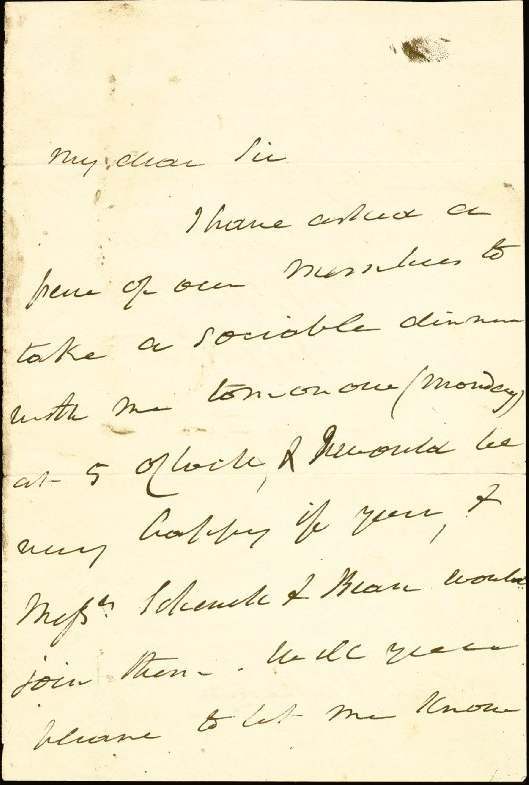 My dear Sir
I have asked a
few of our members to
take a sociable dinner
with me tomorrow (Monday)
at 5 O'clock, & I would be
very happy if you, &
Messrs. Schenck & would
join them. Will you
please to let me know